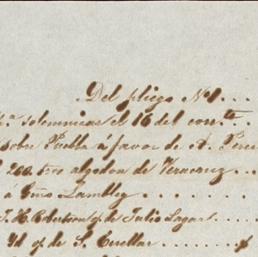 Del pliego No 1. . .
pa. solemnizar el 16 del corrte.
sobre Puebla á favor de A. Perez
200 tros algodon de Veracruz . .
á Gmo Lambley . . . . . . .
J. H. Robertson y de Julio Lagart . . .
Yd of de S. Cuellar . . . . .